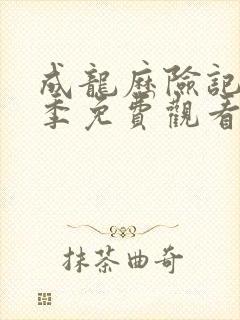 成龍歷險記
季免費觀看
抹茶曲奇